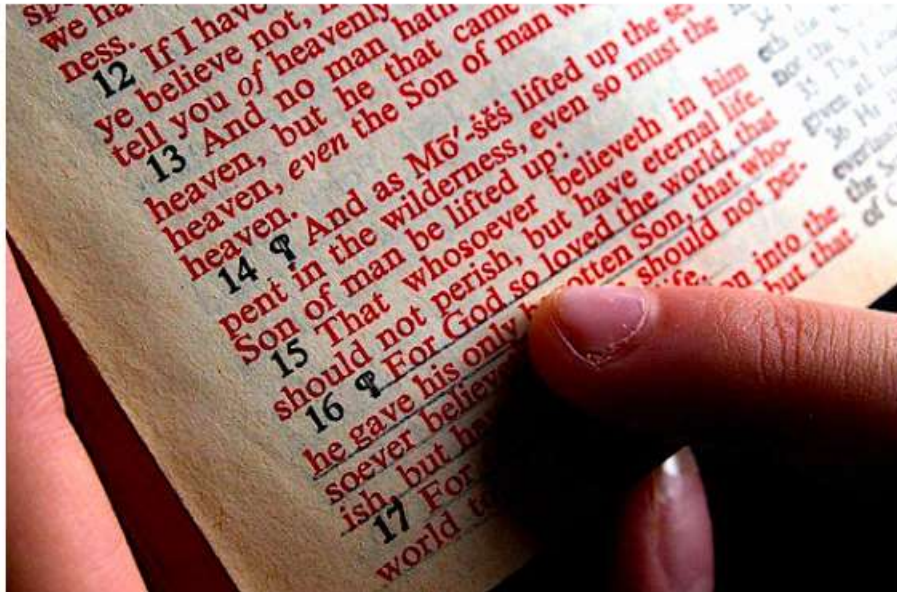 we ha
ness.
12 If I have
ye believe not,
tell you of heavenly
13 And no man hath
heaven, but he that came
heaven, even the Son of man w
heaven.
14 ¶ And as Mō′-s̆ĕs̆ lifted up the
pent in the wilderness, even so must the
Son of man be lifted up:
15 That whosoever believeth in him
should not perish, but have eternal life.
16 ¶ For God so loved the world, that
he gave his only b otten Son, that who-
soever believe should not per-
ish, but ha life.
17 For on into the
world to but that
34
35
36
the
of